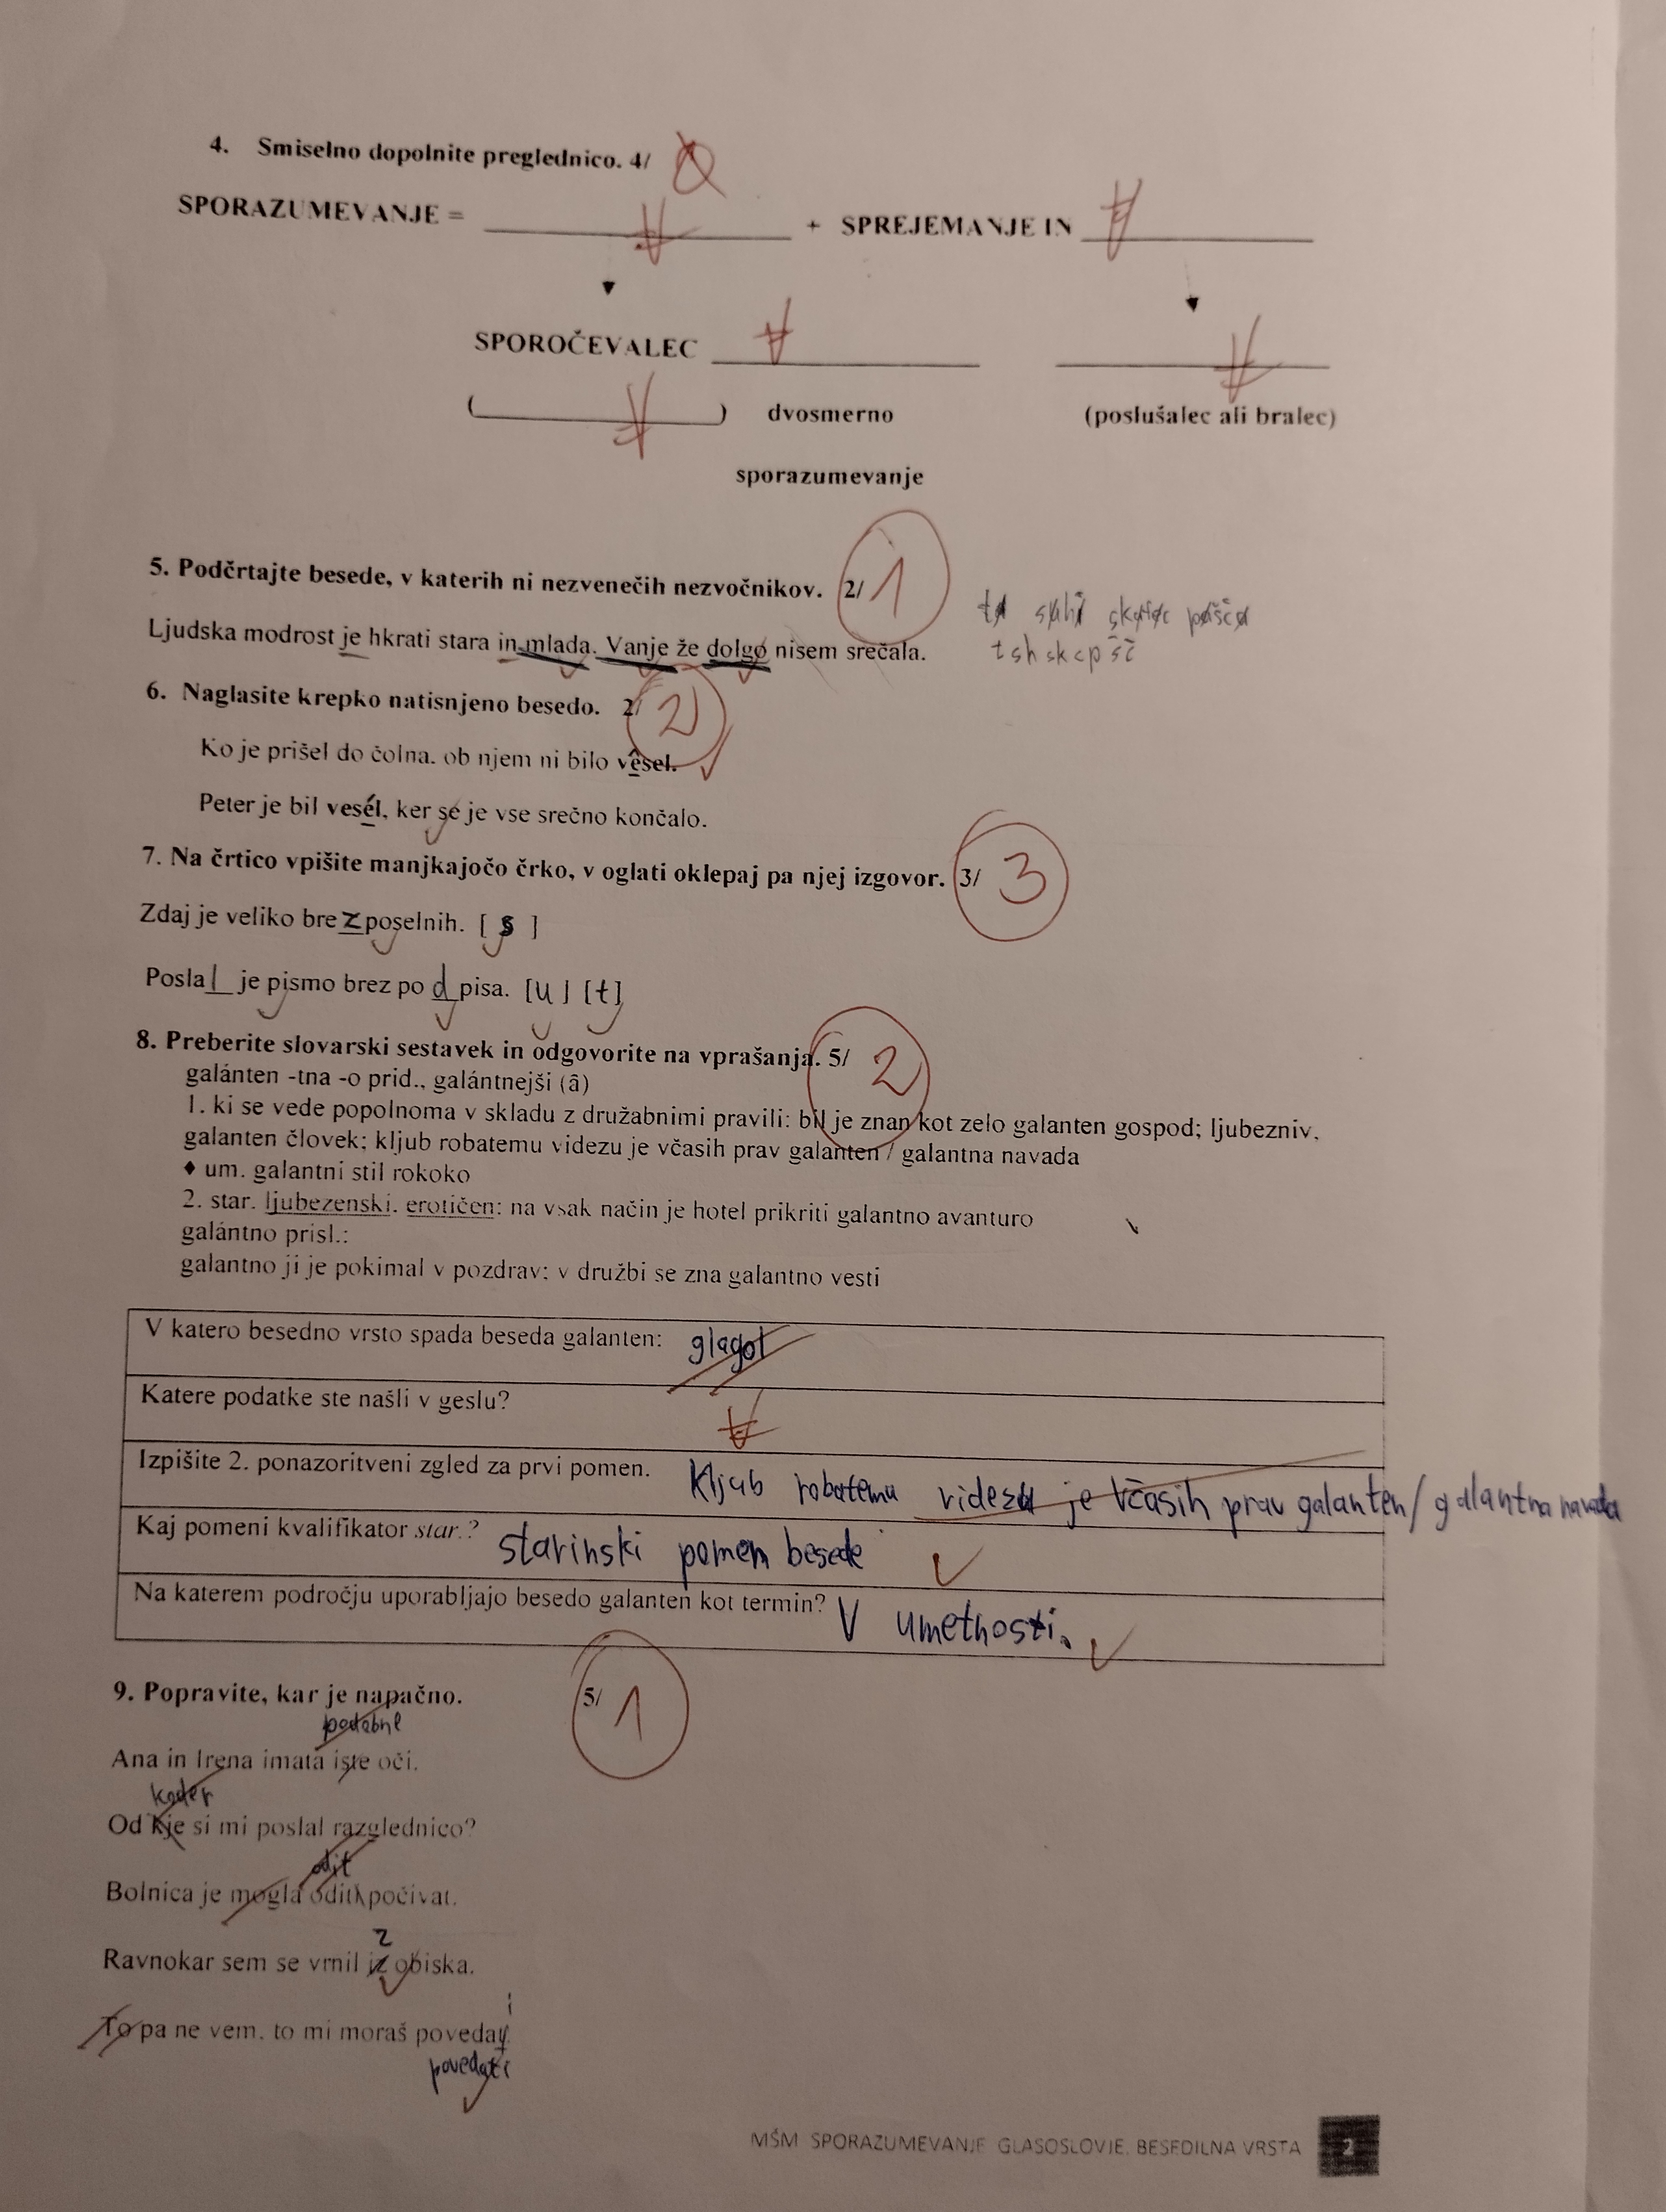 4. Smiselno dopolnite preglednico. 4/
SPORAZUMEVANJE = ____ + SPREJEMANJE IN ____
SPOROČEVALEC ____ ____
(____) dvosmerno (poslušalec ali bralec)
sporazumevanje
5. Podčrtajte besede, v katerih ni nezvenečih nezvočnikov. 2/ 1
Ljudska modrost je hkrati stara in mlada. Vanje že dolgo nisem srečala.
t s h s k c p š č
6. Naglasite krepko natisnjeno besedo. 2/ 2
Ko je prišel do čolna. ob njem ni bilo vêsel.
Peter je bil vesél, ker se je vse srečno končalo.
7. Na črtico vpišite manjkajočo črko, v oglati oklepaj pa njej izgovor. 3/ 3
Zdaj je veliko bre z poselnih. [ s ]
Posla l je pismo brez po d pisa. [u] [t]
8. Preberite slovarski sestavek in odgovorite na vprašanja. 5/ 2
galánten -tna -o prid., galántnejši (ā)
1. ki se vede popolnoma v skladu z družabnimi pravili: bil je znan kot zelo galanten gospod; ljubezniv,
galanten človek; kljub robatemu videzu je včasih prav galanten / galantna navada
♦ um. galantni stil rokoko
2. star. ljubezenski. erotičen: na vsak način je hotel prikriti galantno avanturo
galántno prisl.:
galantno ji je pokimal v pozdrav; v družbi se zna galantno vesti
V katero besedno vrsto spada beseda galanten: glagol
Katere podatke ste našli v geslu?
Izpišite 2. ponazoritveni zgled za prvi pomen. Kljub robatemu videzu je včasih prav galanten / galantna navada
Kaj pomeni kvalifikator star.? starinski pomen besede
Na katerem področju uporabljajo besedo galanten kot termin? V umetnosti.
9. Popravite, kar je napačno. 5/ 1
podobne
Ana in Irena imata iste oči.
koder
Od kje si mi poslal razglednico?
odit
Bolnica je mogla oditi počivat.
z
Ravnokar sem se vrnil iz obiska.
i
To pa ne vem. to mi moraš poveday.
povedati
MŠM SPORAZUMEVANJE GLASOSLOVJE. BESEDILNA VRSTA 2